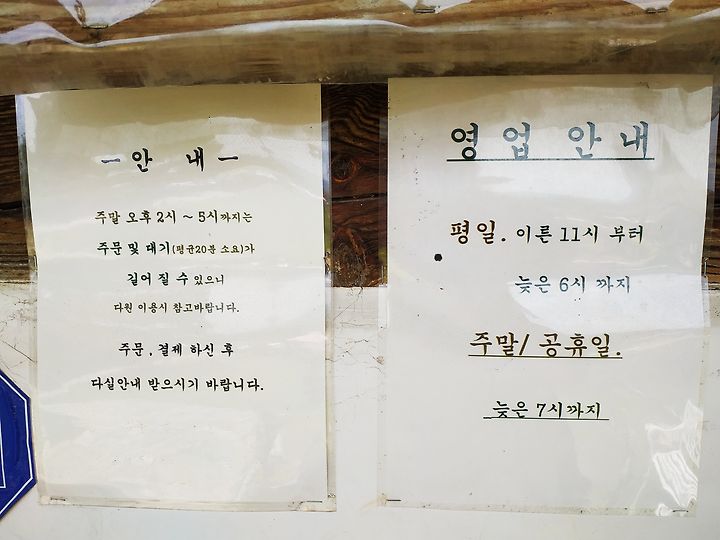 ー안 내ー
주말 오후 2시 ~ 5시까지는
주문 및 대기(평균20분 소요)가
길어 질 수 있으니
다원 이용시 참고바랍니다.
주문, 결제 하신 후
다실안내 받으시기 바랍니다.
영업 안내
평일. 이른 11시 부터
늦은 6시 까지
주말/ 공휴일.
늦은 7시까지